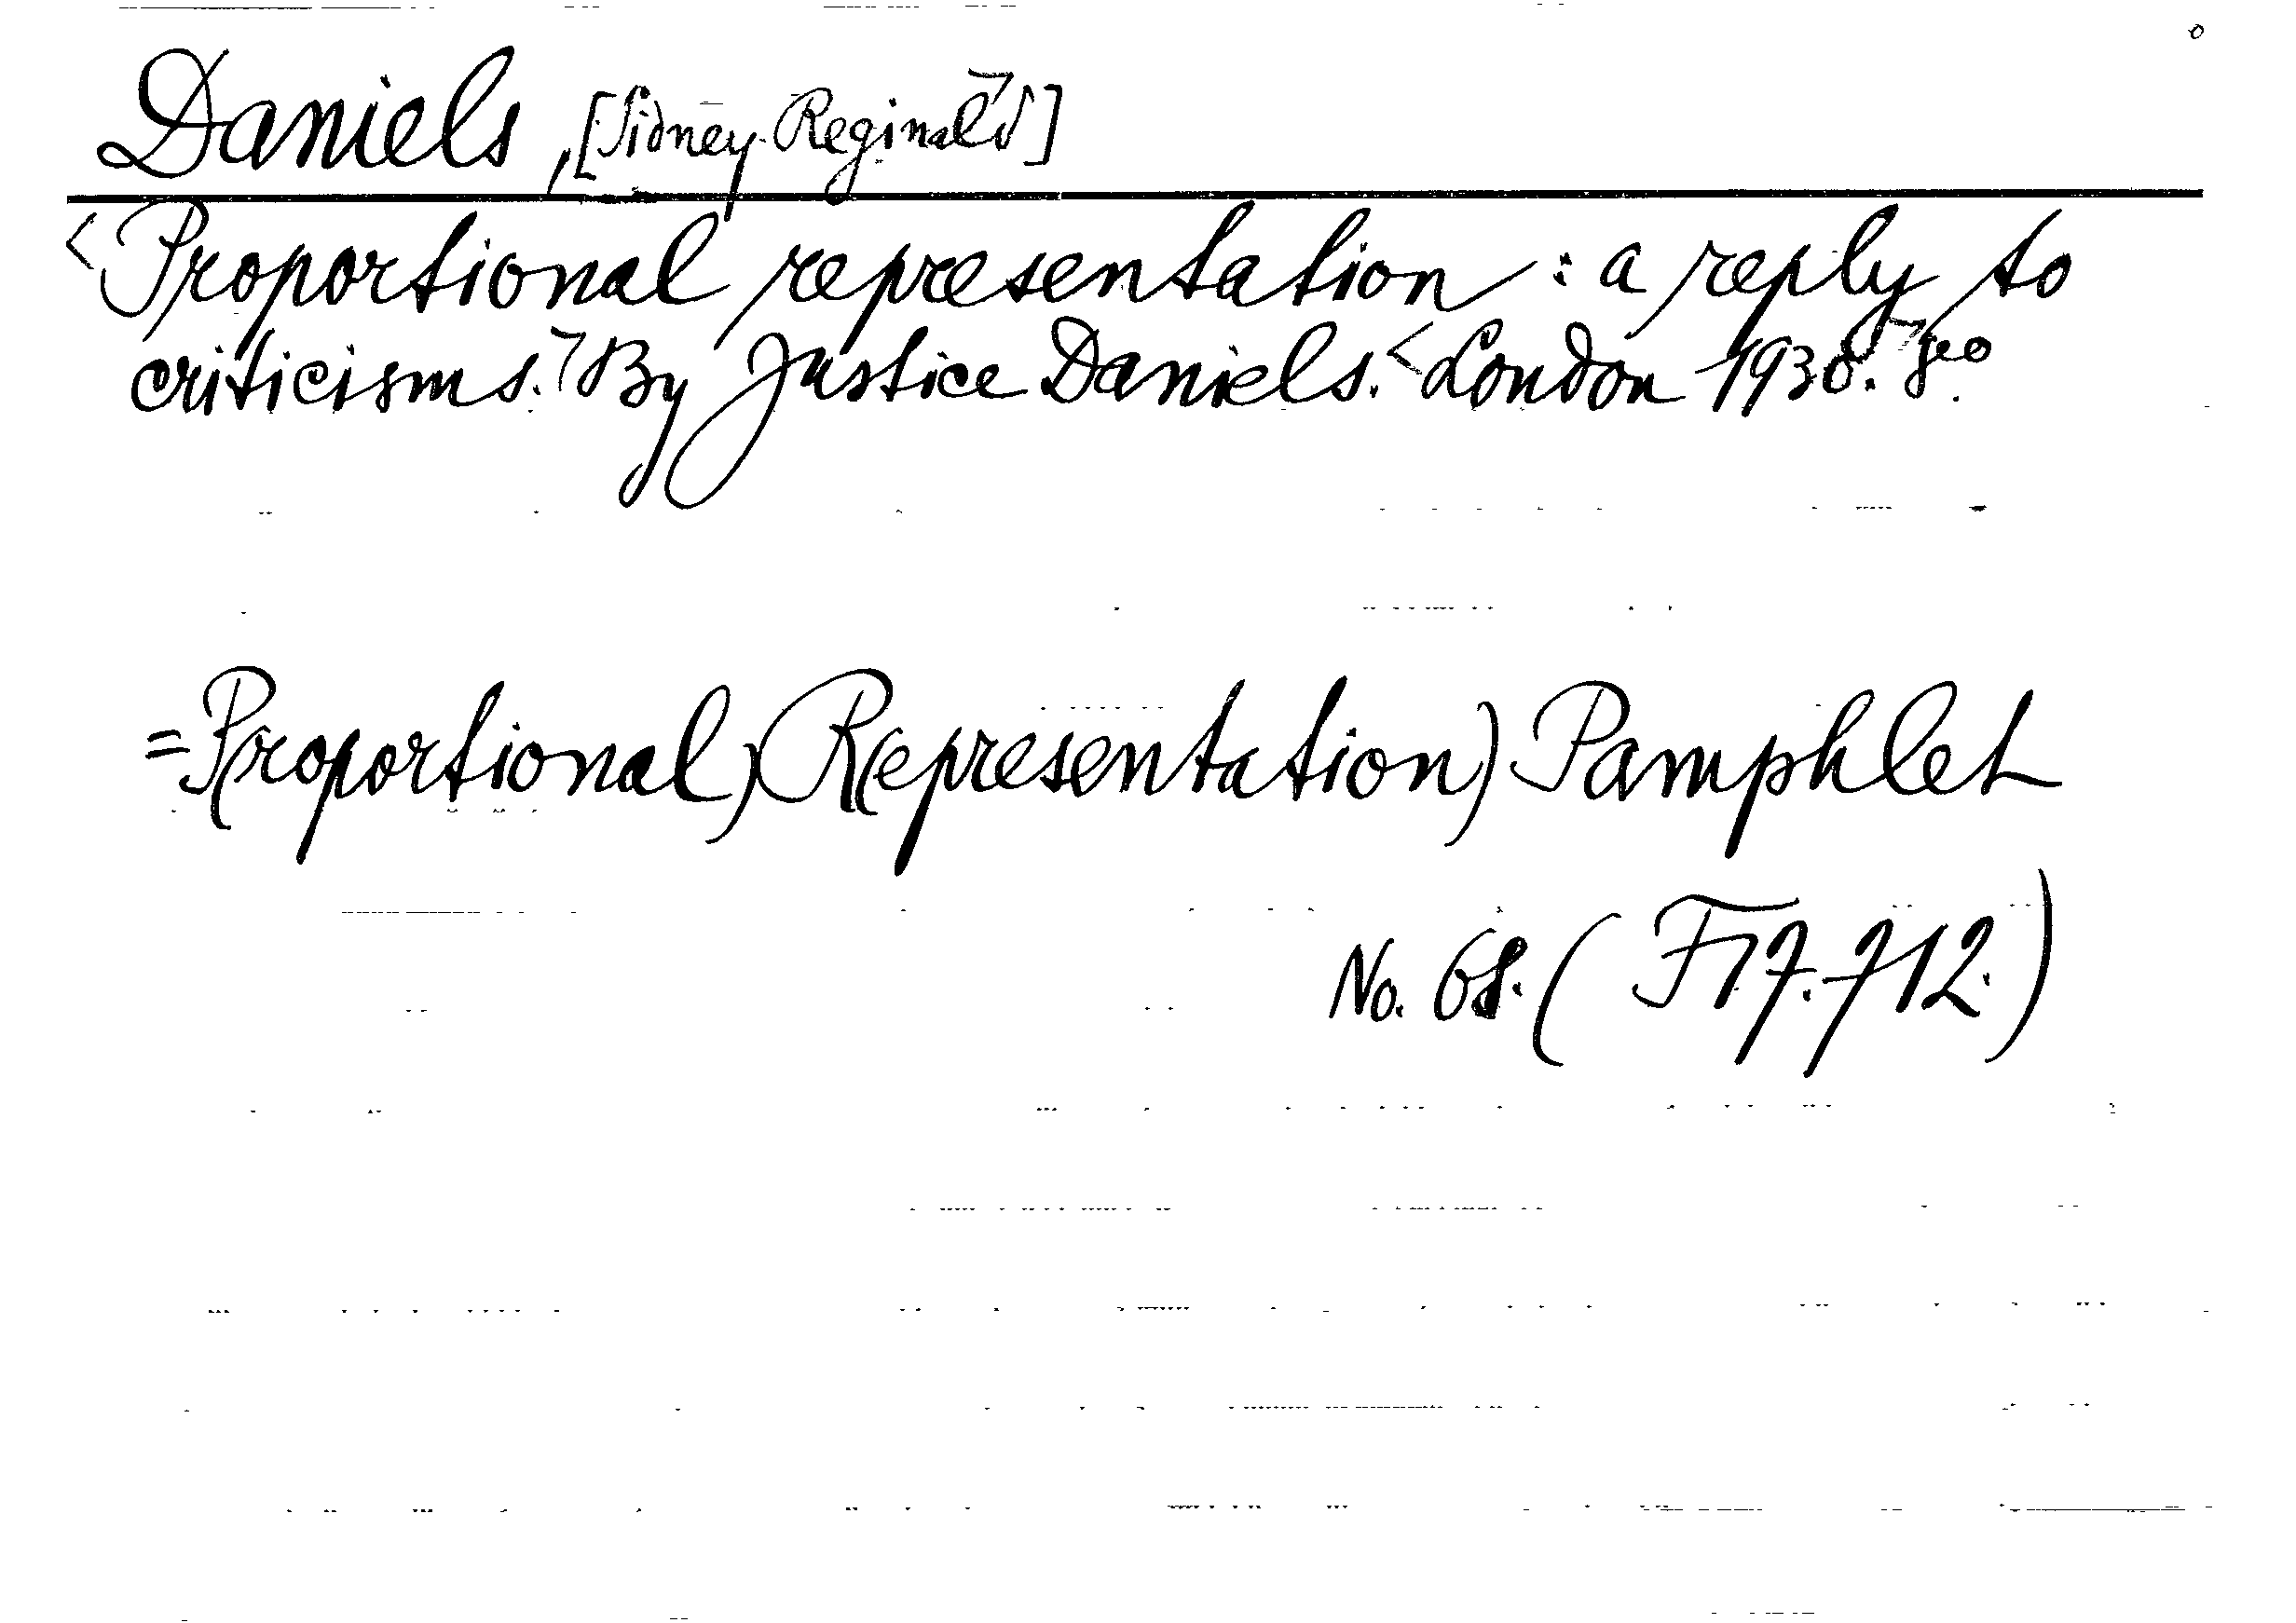 Daniels, [Sidney Reginald]
<Proportional representation : a reply to
criticisms.> By Justice Daniels. <London 1930.> 8vo.
=P(roportional) R(epresentation) Pamphlet
No. 68. (F17.712.)